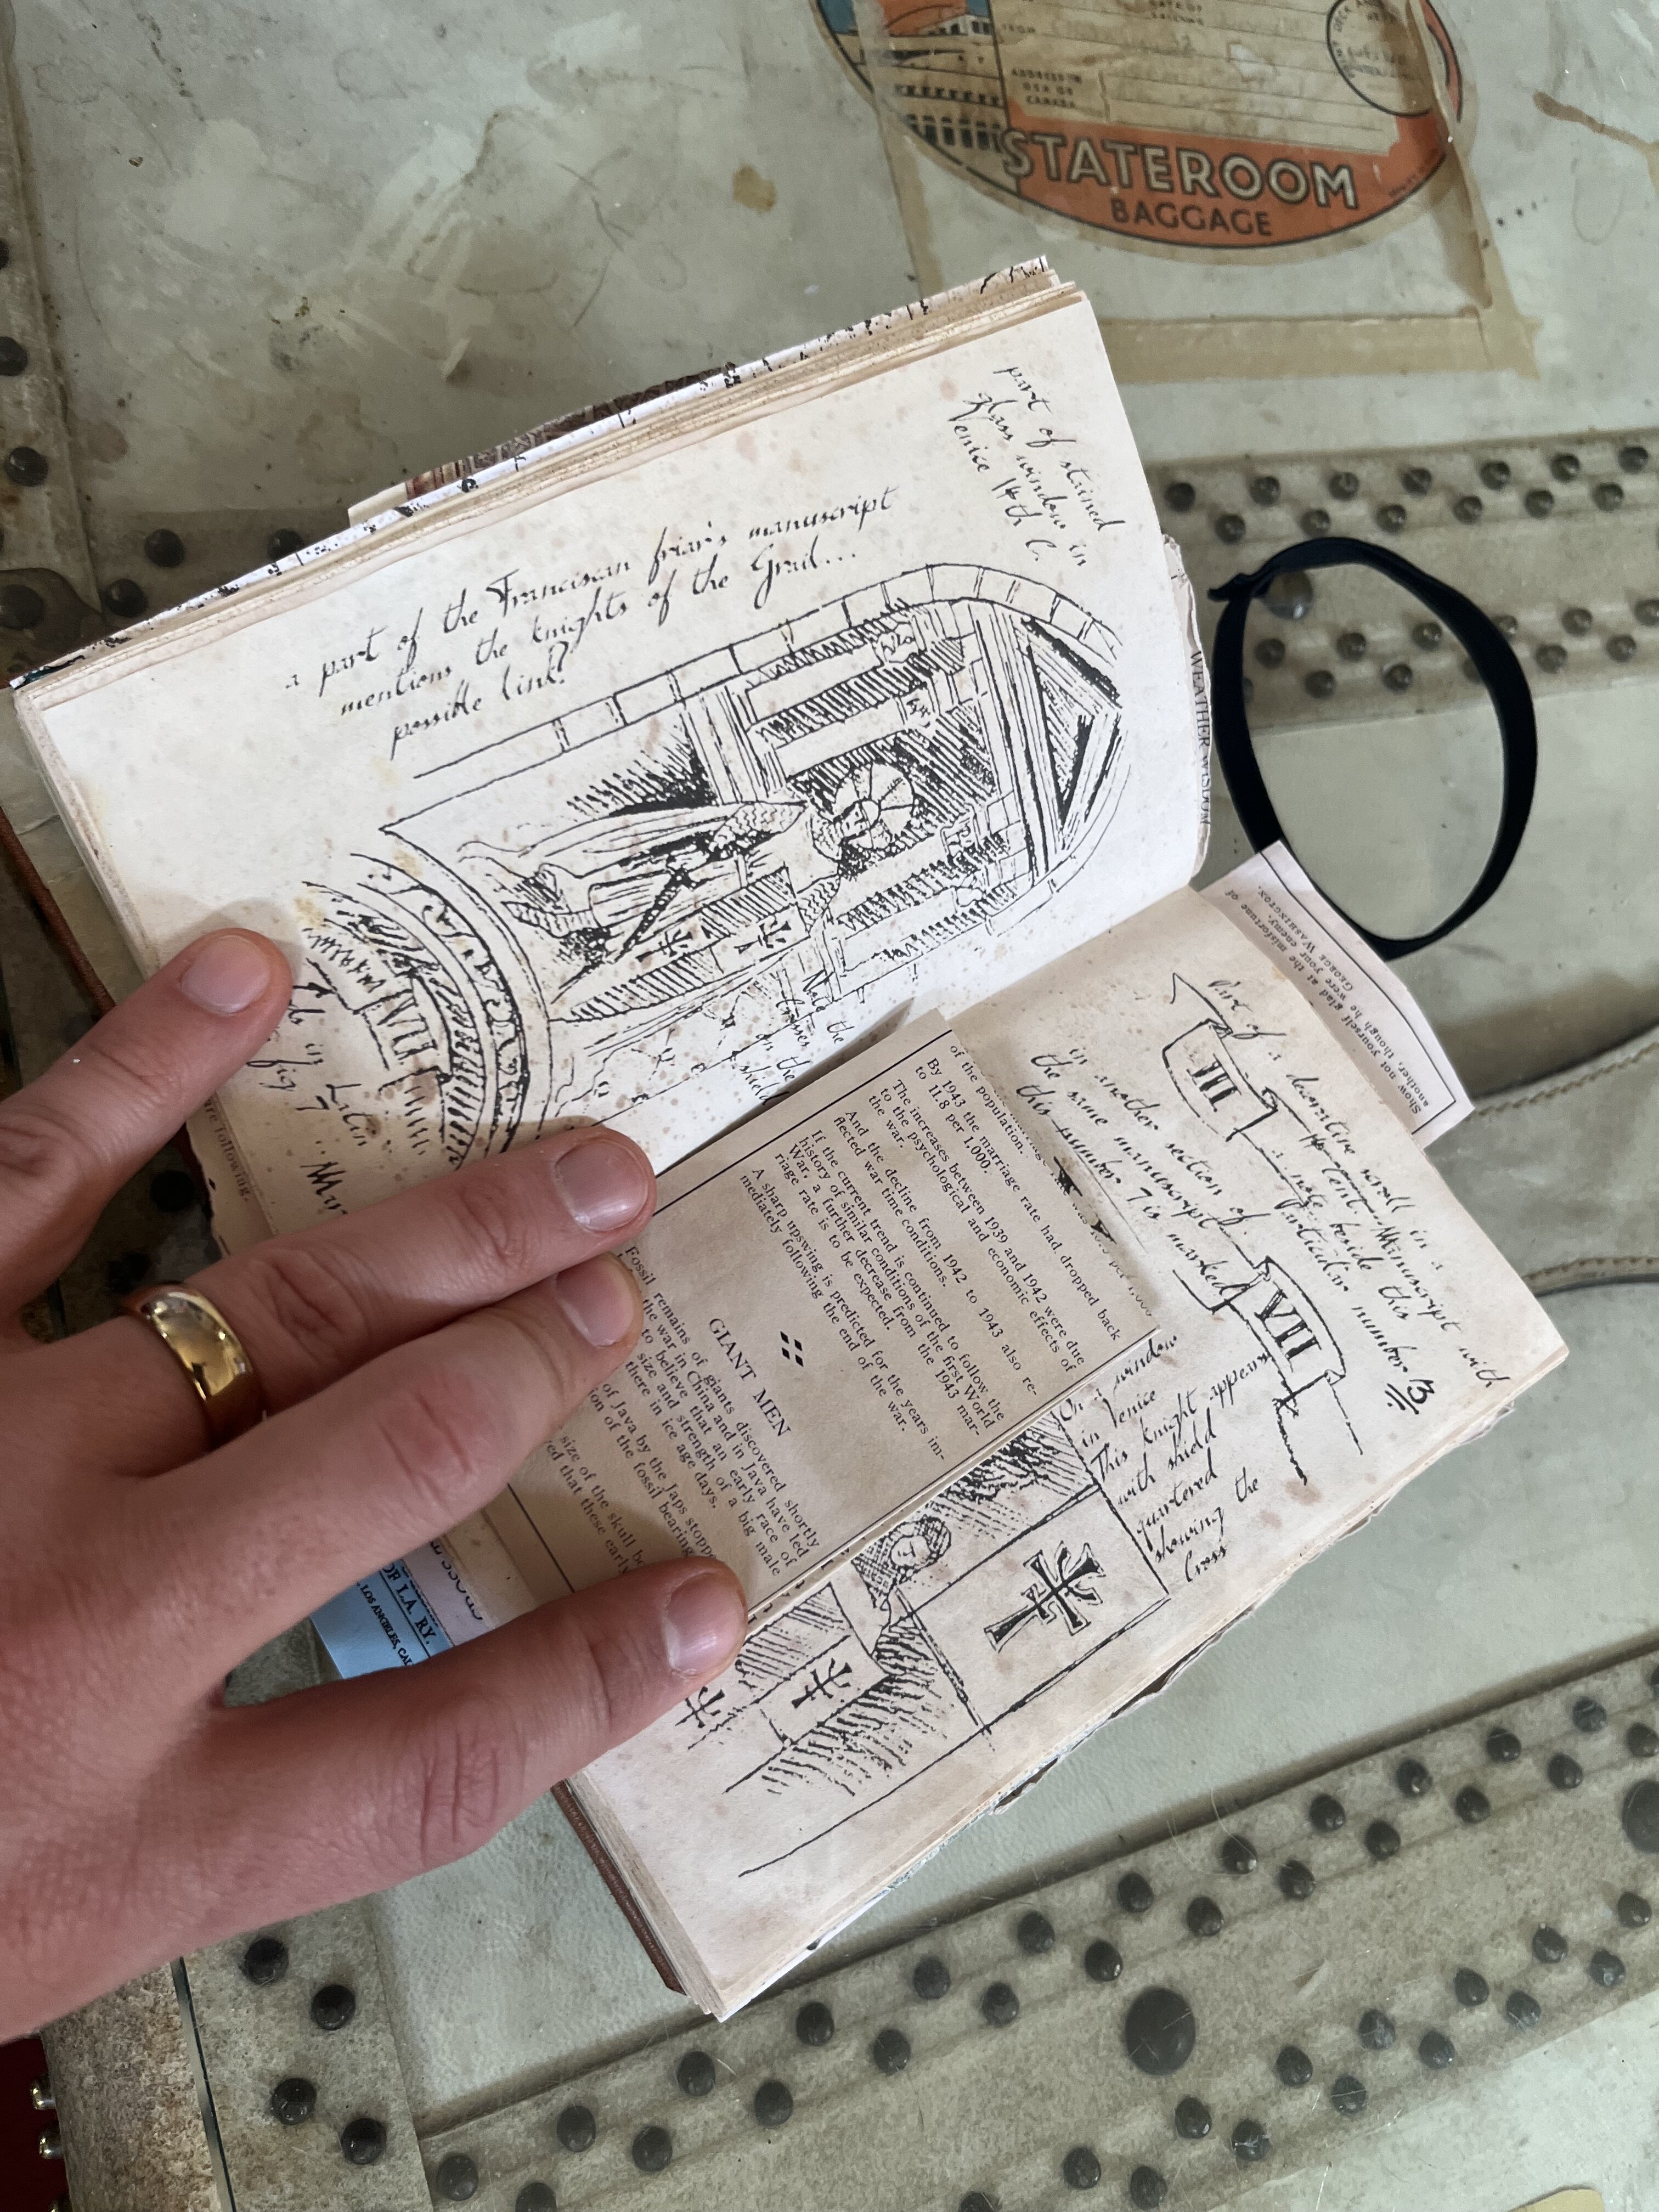 DATE OF
SAILING
FROM
ADDRESS IN
USA OR
CANADA
STATEROOM
BAGGAGE
part of stained
glass window in
Venice 14th C.
a part of the Franciscan friar's manuscript
mentions the knights of the Grail...
possible link?
Note the
crosses on the
shield
VII
in Latin
fig 7
following.
WEATHER WISDOM
Show not yourself glad at the misfortune of
another, though he were your enemy.
GEORGE WASHINGTON.
Part of a decorative scroll in a
14 Cent. Manuscript with
a note beside this
particular number 13
III
in another section of
the same manuscript
this number 7 is marked
VII
On a window
in Venice
This knight appears
with shield
quartered
showing the
Cross
of the population.
By 1943 the marriage rate had dropped back
to 11.8 per 1,000.
The increases between 1939 and 1942 were due
to the psychological and economic effects of
the war.
And the decline from 1942 to 1943 also re-
flected war time conditions.
If the current trend is continued to follow the
history of similar conditions of the first World
War, a further decrease from the 1943 mar-
riage rate is to be expected.
A sharp upswing is predicted for the years im-
mediately following the end of the war.
GIANT MEN
Fossil remains of giants discovered shortly
the war in China and in Java have led
to believe that an early race of
size and strength of a big male
there in ice age days.
of Java by the Japs stopped
of the fossil bearing
size of the skull
that these early
OF L.A. RY.
LOS ANGELES, CAL